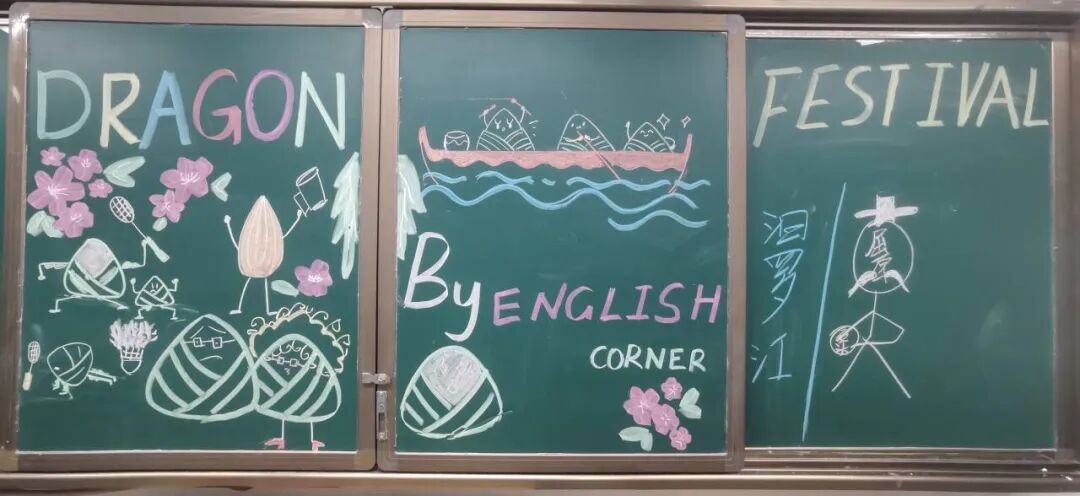 DRAGON
FESTIVAL
By ENGLISH
CORNER
汨罗江
屈原